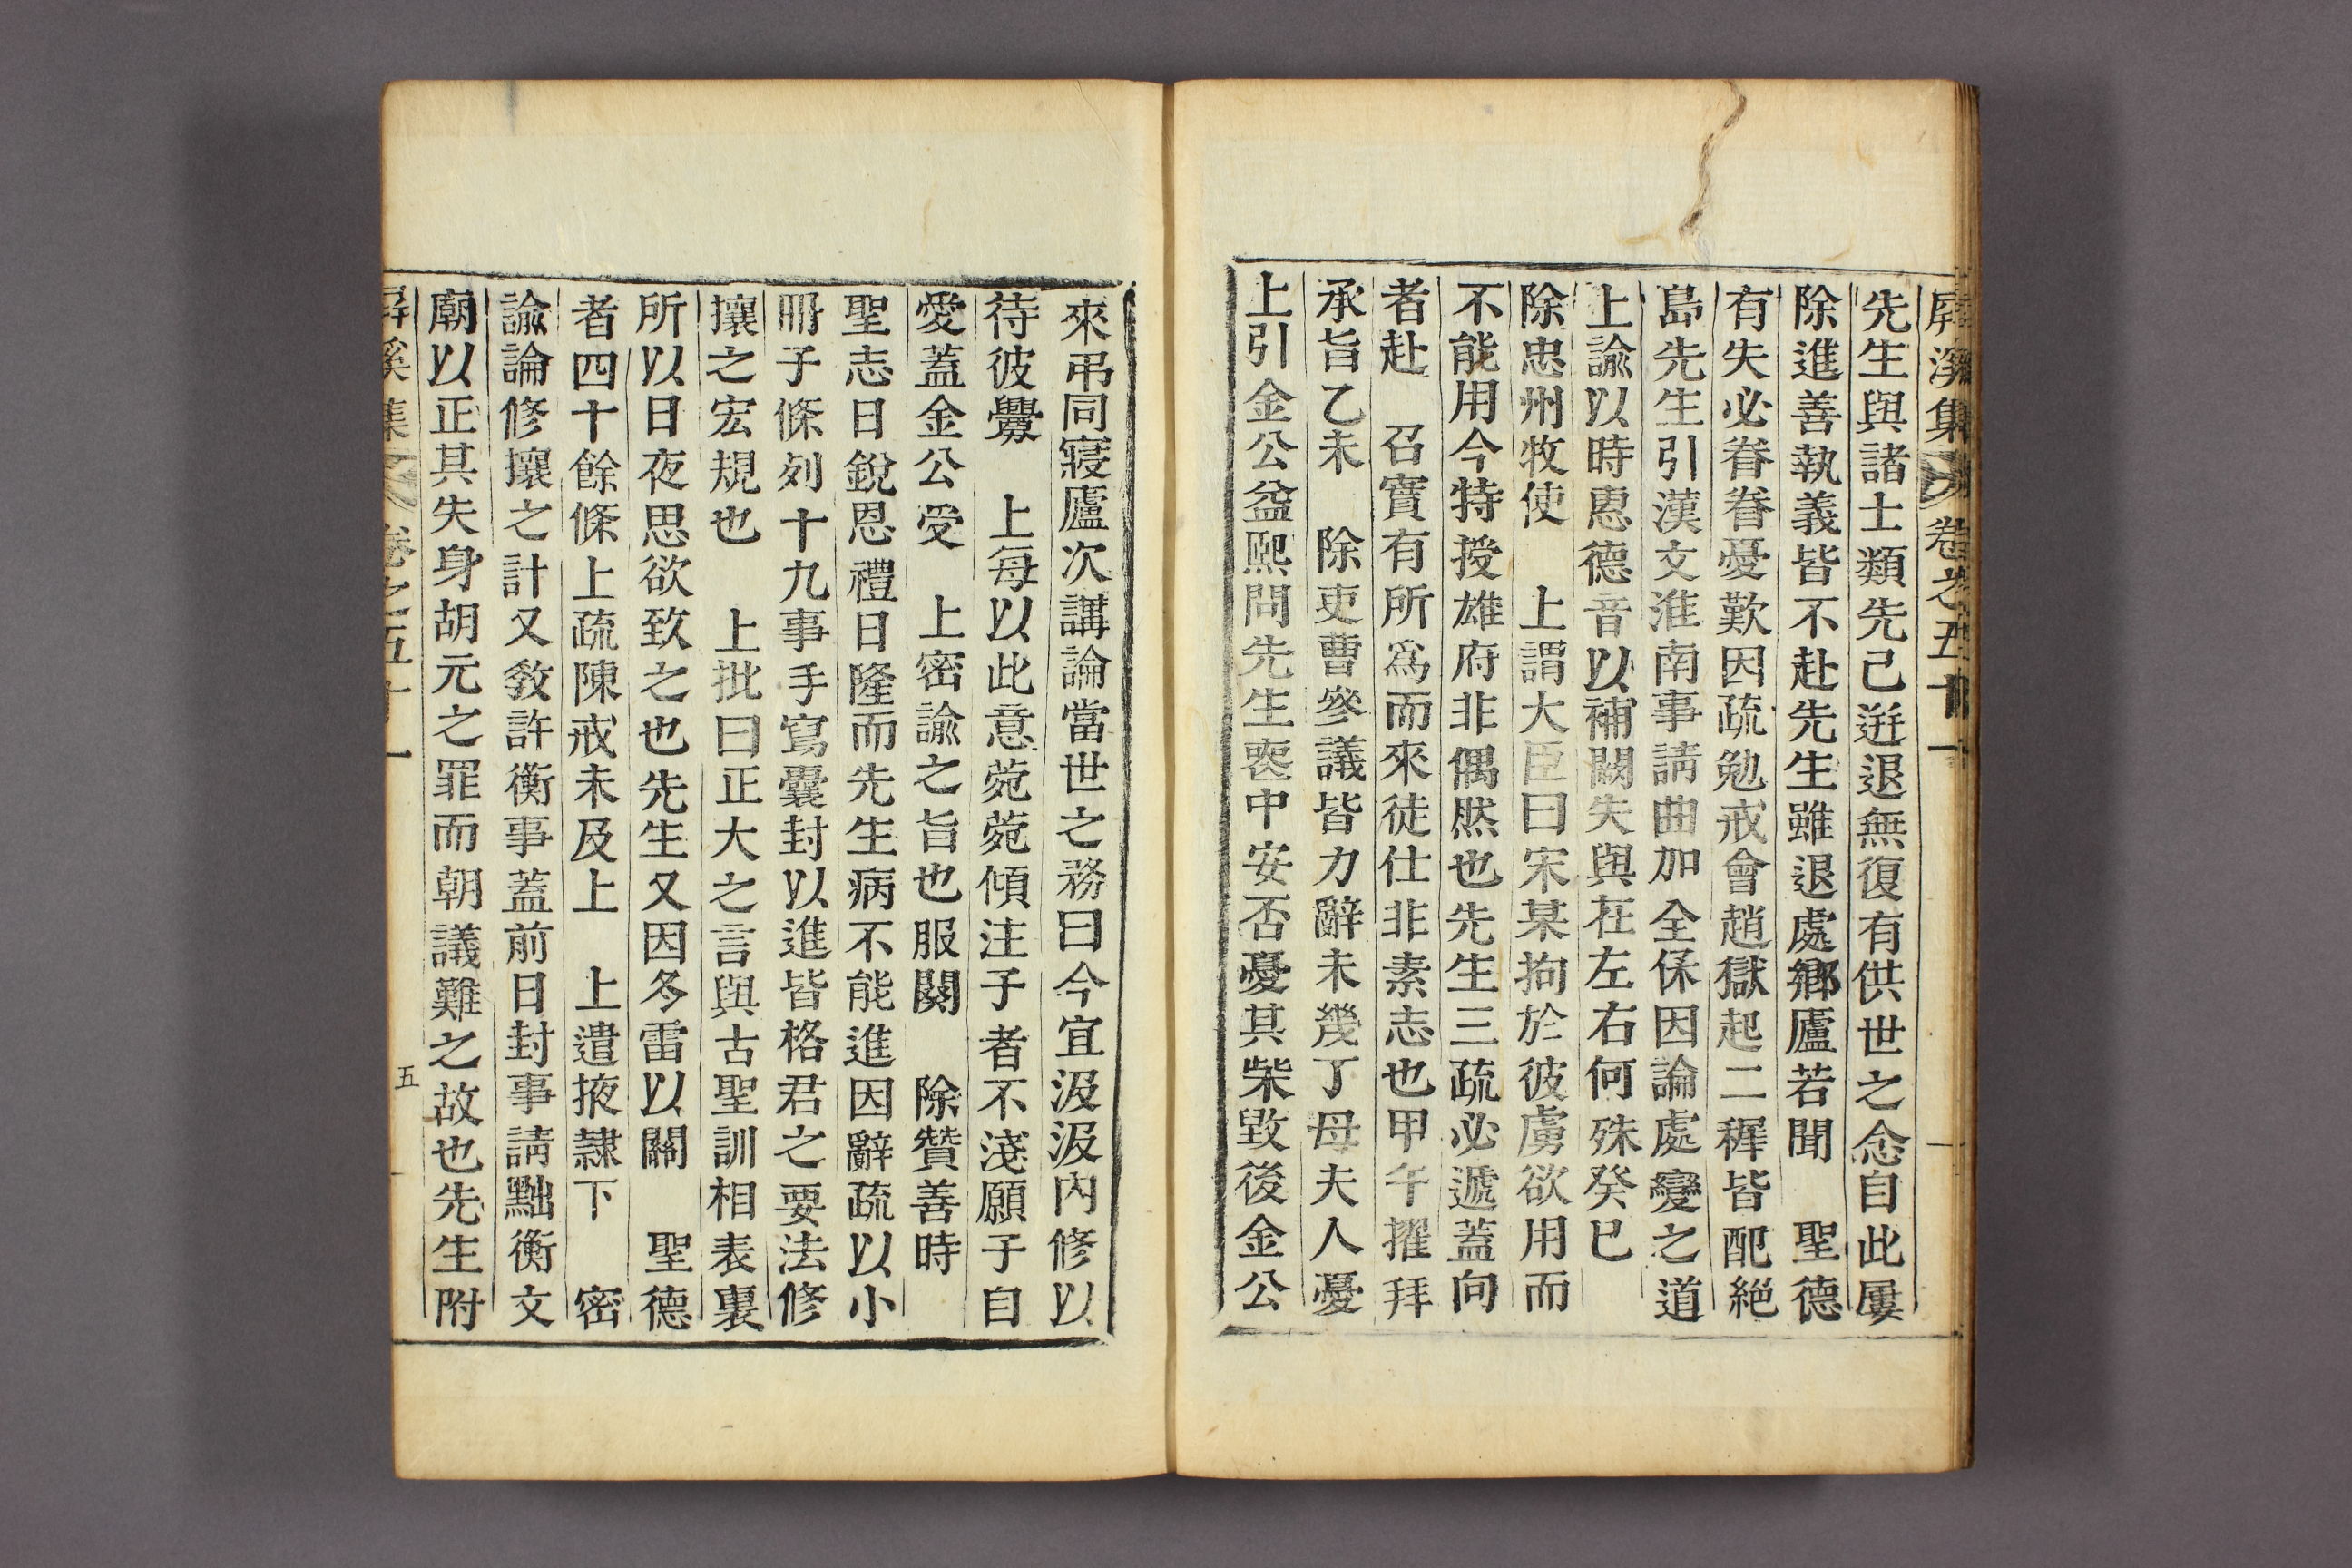 屛溪集 卷之五十一
先生與諸士類先已迸退無復有供世之念自此屢
除進善執義皆不赴先生雖退處鄕廬若聞　聖德
有失必眷眷憂歎因疏勉戒會趙獄起二穉皆配絶
島先生引漢文淮南事請曲加　全保因論處變之道
上諭以時惠德音以補闕失與在左右何殊癸巳
除忠州牧使　上謂大臣曰宋某拘於彼虜欲用而
不能用今特授雄府非偶然也先生三疏必遞蓋向
者赴　召實有所爲而來徒仕非素志也甲午擢拜
承旨乙未　除吏曹參議皆力辭未幾丁母夫人憂
上引金公益熙問先生喪中安否憂其柴毀後金公
來弔同寢廬次講論當世之務曰今宜汲汲內修以
待彼釁　上每以此意菀菀傾注子者不淺願子自
愛蓋金公受　上密諭之旨也服闋　除贊善時
聖志日銳恩禮日隆而先生病不能進因辭疏以小
冊子條列十九事手寫囊封以進皆格君之要法修
攘之宏規也　上批曰正大之言與古聖訓相表裏
所以日夜思欲致之也先生又因冬雷以闢　聖德
者四十餘條上疏陳戒未及上　上遣掖隷下　密
諭論修攘之計又敎許衡事蓋前日封事請黜衡文
廟以正其失身胡元之罪而朝議難之故也先生附
屛溪集 卷之五十一
五